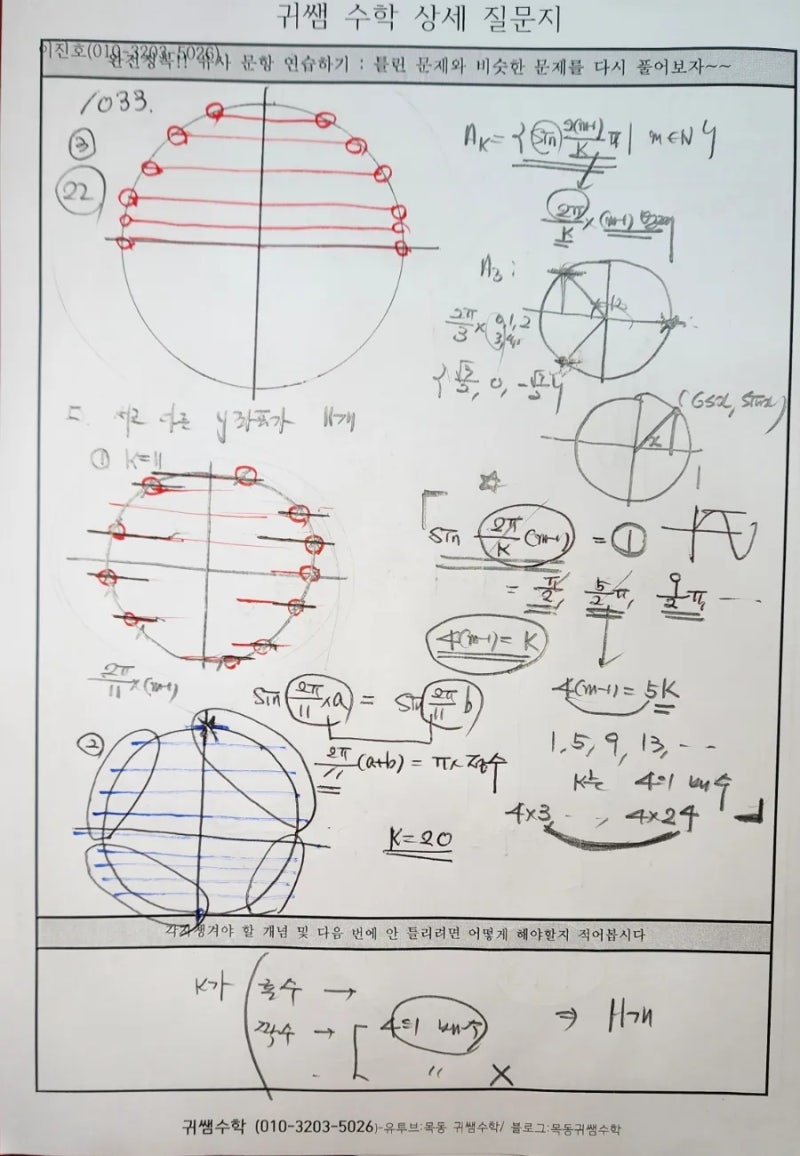 귀쌤 수학 상세 질문지
이진호(010-3203-5026)
완전정복!! 유사 문항 연습하기 : 틀린 문제와 비슷한 문제를 다시 풀어보자~~
1033.
③
22
A_K = { sin 2(m-1)/K π | m ∈ N }
2π/K × (m-1)
A₃ :
2π/3 × 0, 1, 2
3, 4, ..
{ √3/2, 0, -√3/2 }
(cosx, sinx)
x
1
ㄷ. 서로 다른 y좌표가 11개
① K=11
2π/11 × (m-1)
☆
sin 2π/K (m-1) = ①
= π/2, 5/2 π, 9/2 π, ...
4(m-1) = K
4(m-1) = 5K
sin 2π/11 × a = sin 2π/11 b
2π/11 (a+b) = π × 정수
1, 5, 9, 13, ...
K는 4의 배수
4×3, ..., 4×24
②
K=20
각자챙겨야 할 개념 및 다음 번에 안 틀리려면 어떻게 해야할지 적어봅시다
K가 홀수 →
짝수 → 4의 배수 ⇒ 11개
〃 X
귀쌤수학 (010-3203-5026)-유투브:목동 귀쌤수학/ 블로그:목동귀쌤수학